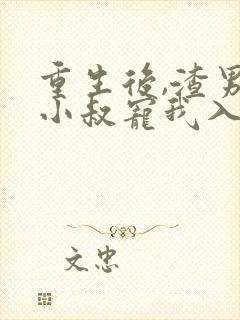 重生後,渣男
小叔寵我入
文忠